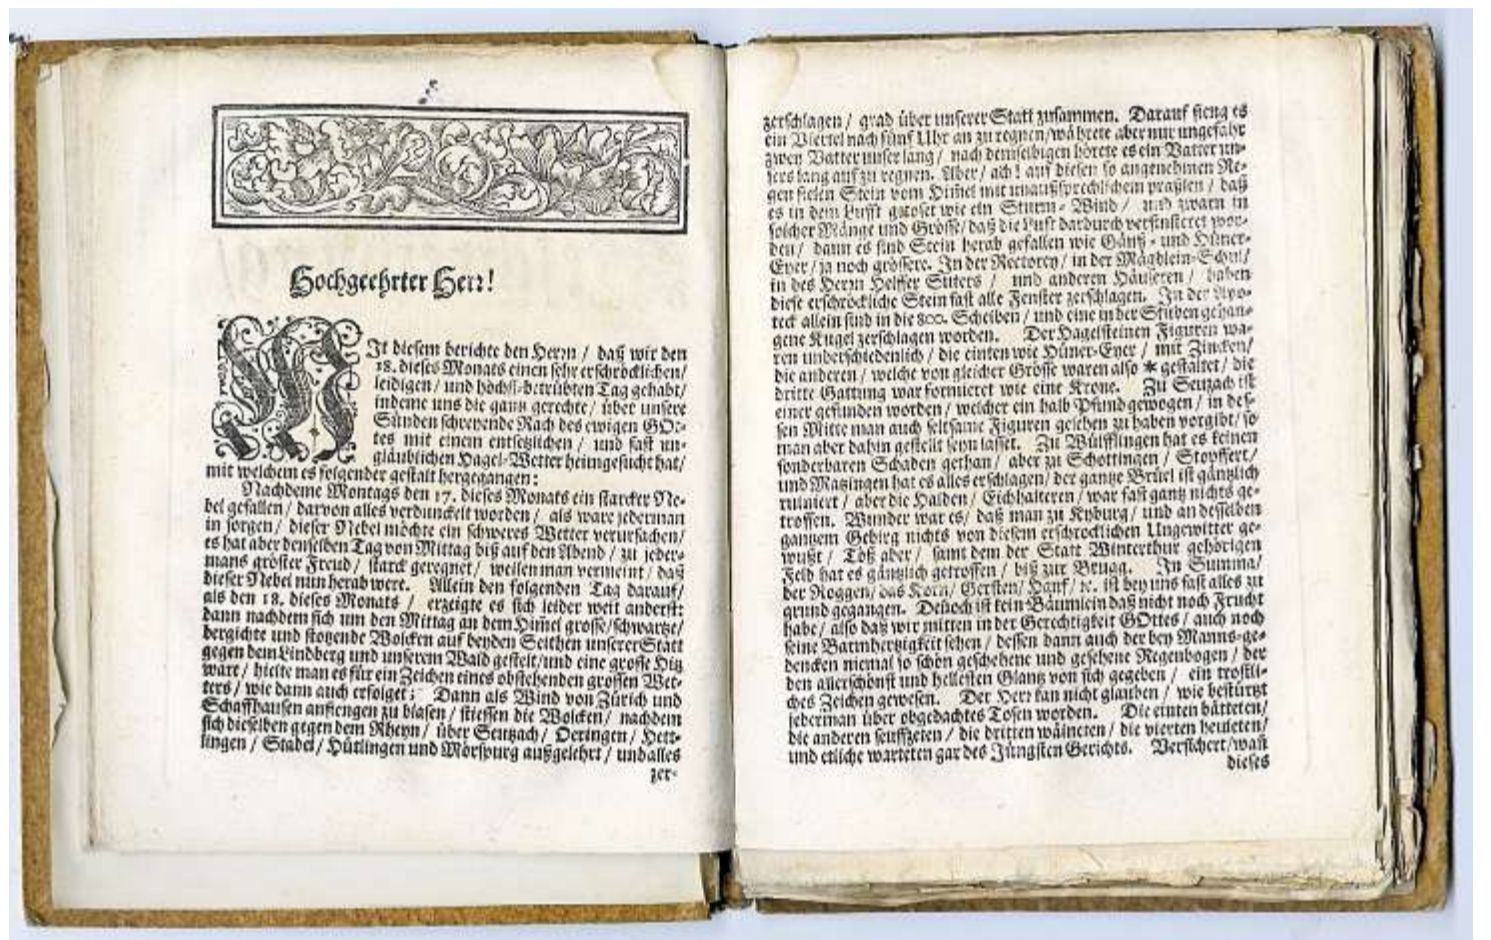 Hochgeehrter Herr!
MIt diesem berichte den Herrn / daß wir den
18. dieses Monats einen sehr erschröcklichen/
leidigen / und höchst-betrübten Tag gehabt/
indeme uns die gantz gerechte / über unsere
Sünden schreyende Rach des ewigen GOt-
tes mit einem entsetzlichen / und fast un-
gläublichen Hagel-Wetter heimgesucht hat/
mit welchem es folgender gestalt hergegangen:
Nachdeme Montags den 17. dieses Monats ein starcker Ne-
bel gefallen / darvon alles verdunckelt worden / als ware jederman
in sorgen / dieser Nebel möchte ein schweres Wetter verursachen/
es hat aber denselben Tag von Mittag biß auf den Abend / zu jeder-
mans gröster Freud / starck geregnet / weilen man vermeint / daß
dieser Nebel nun herab were. Allein den folgenden Tag darauf/
als den 18. dieses Monats / erzeigte es sich leider weit anderst:
dann nachdem sich um den Mittag an dem Him̄el grosse/schwartze/
bergichte und stotzende Wolcken auf beyden Seithen unserer Statt
gegen dem Lindberg und unserem Wald gestelt/und eine grosse Hitz
ware / hielte man es für ein Zeichen eines obstehenden grossen Wet-
ters / wie dann auch erfolget; Dann als Wind von Zürich und
Schaffhausen anfiengen zu blasen / stiessen die Wolcken / nachdem
sich dieselben gegen dem Rheyn / über Seutzach / Oeringen / Hett-
lingen / Stadel / Hütlingen und Mörspurg außgelehrt / und alles
zer-
zerschlagen / grad über unserer Statt zusammen. Darauf fieng es
ein Viertel nach fünf Uhr an zu regnen/währete aber nur ungefahr
zwey Vatter unser lang / nach demselbigen hörete es ein Vatter un-
sers lang auf zu regnen. Aber / ach! auf diesen so angenehmen Re-
gen fielen Stein vom Him̄el mit unaußsprechlichem praßlen / daß
es in dem Lufft getoset wie ein Sturm-Wind / und zwarn in
solcher Mänge und Grösse/daß die Luft dardurch verfinsteret wor-
den / dann es sind Stein herab gefallen wie Gänß- und Hüner-
Eyer / ja noch grössere. In der Rectorey / in der Mägdlein-Schul/
in des Herrn Helffer Suters / und anderen Häuseren / haben
diese erschröckliche Stein fast alle Fenster zerschlagen. In der Apo-
teck allein sind in die 800. Scheiben / und eine in der Stuben gehan-
gene Kugel zerschlagen worden. Der Hagelsteinen Figuren wa-
ren underschiedenlich / die einten wie Hüner-Eyer / mit Zincken/
die anderen / welche von gleicher Grösse waren also * gestaltet / die
dritte Gattung war formieret wie eine Krone. Zu Seutzach ist
einer gefunden worden / welcher ein halb Pfund gewogen / in des-
sen Mitte man auch seltsame Figuren gesehen zu haben vorgibt/so
man aber dahin gestellt seyn lasset. Zu Wülfflingen hat es keinen
sonderbaren Schaden gethan / aber zu Schottingen / Stoffert/
und Matzingen hat es alles erschlagen / der gantze Brüel ist gäntzlich
ruiniert / aber die Halden / Eichhalteren / war fast gantz nichts ge-
troffen. Wunder war es / daß man zu Kyburg / und an desselben
gantzem Gebirg nichts von diesem erschrocklichen Ungewitter ge-
wußt / Töß aber / samt dem der Statt Winterthur gehörigen
Feld hat es gäntzlich getroffen / biß zur Brugg. In Summa/
der Roggen / das Korn / Gersten / Hanf / ꝛc. ist bey uns fast alles zu
grund gegangen. Deñoch ist kein Bäumlein daß nicht noch Frucht
habe / also daß wir mitten in der Gerechtigkeit GOttes / auch noch
seine Barmhertzigkeit sehen / dessen dann auch der bey Manns-ge-
dencken niemal so schön geschehene und gesehene Regenbogen / der
den allerschönst und hellesten Glantz von sich gegeben / ein trostli-
ches Zeichen gewesen. Der Herr kan nicht glauben / wie bestürtzt
jederman über obgedachtes Tosen worden. Die einten bätteten/
die anderen seuffzeten / die dritten wäineten / die vierten heuleten/
und etliche warteten gar des Jüngsten Gerichts. Versichert/wañ
dieses